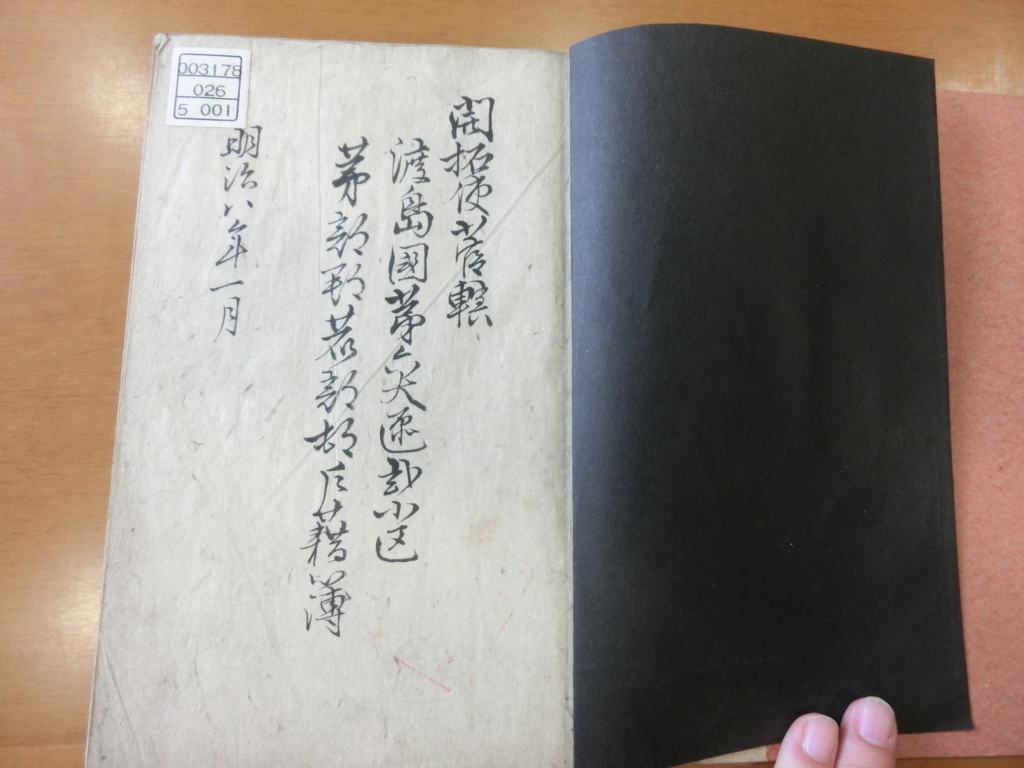 開拓使管轄
渡島國第六大區貳小区
茅部郡落部村戸籍簿
明治八年一月
003178
026
5 001